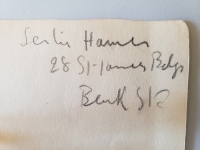 Leslie Hames
28 St James Bdgs
Bank St